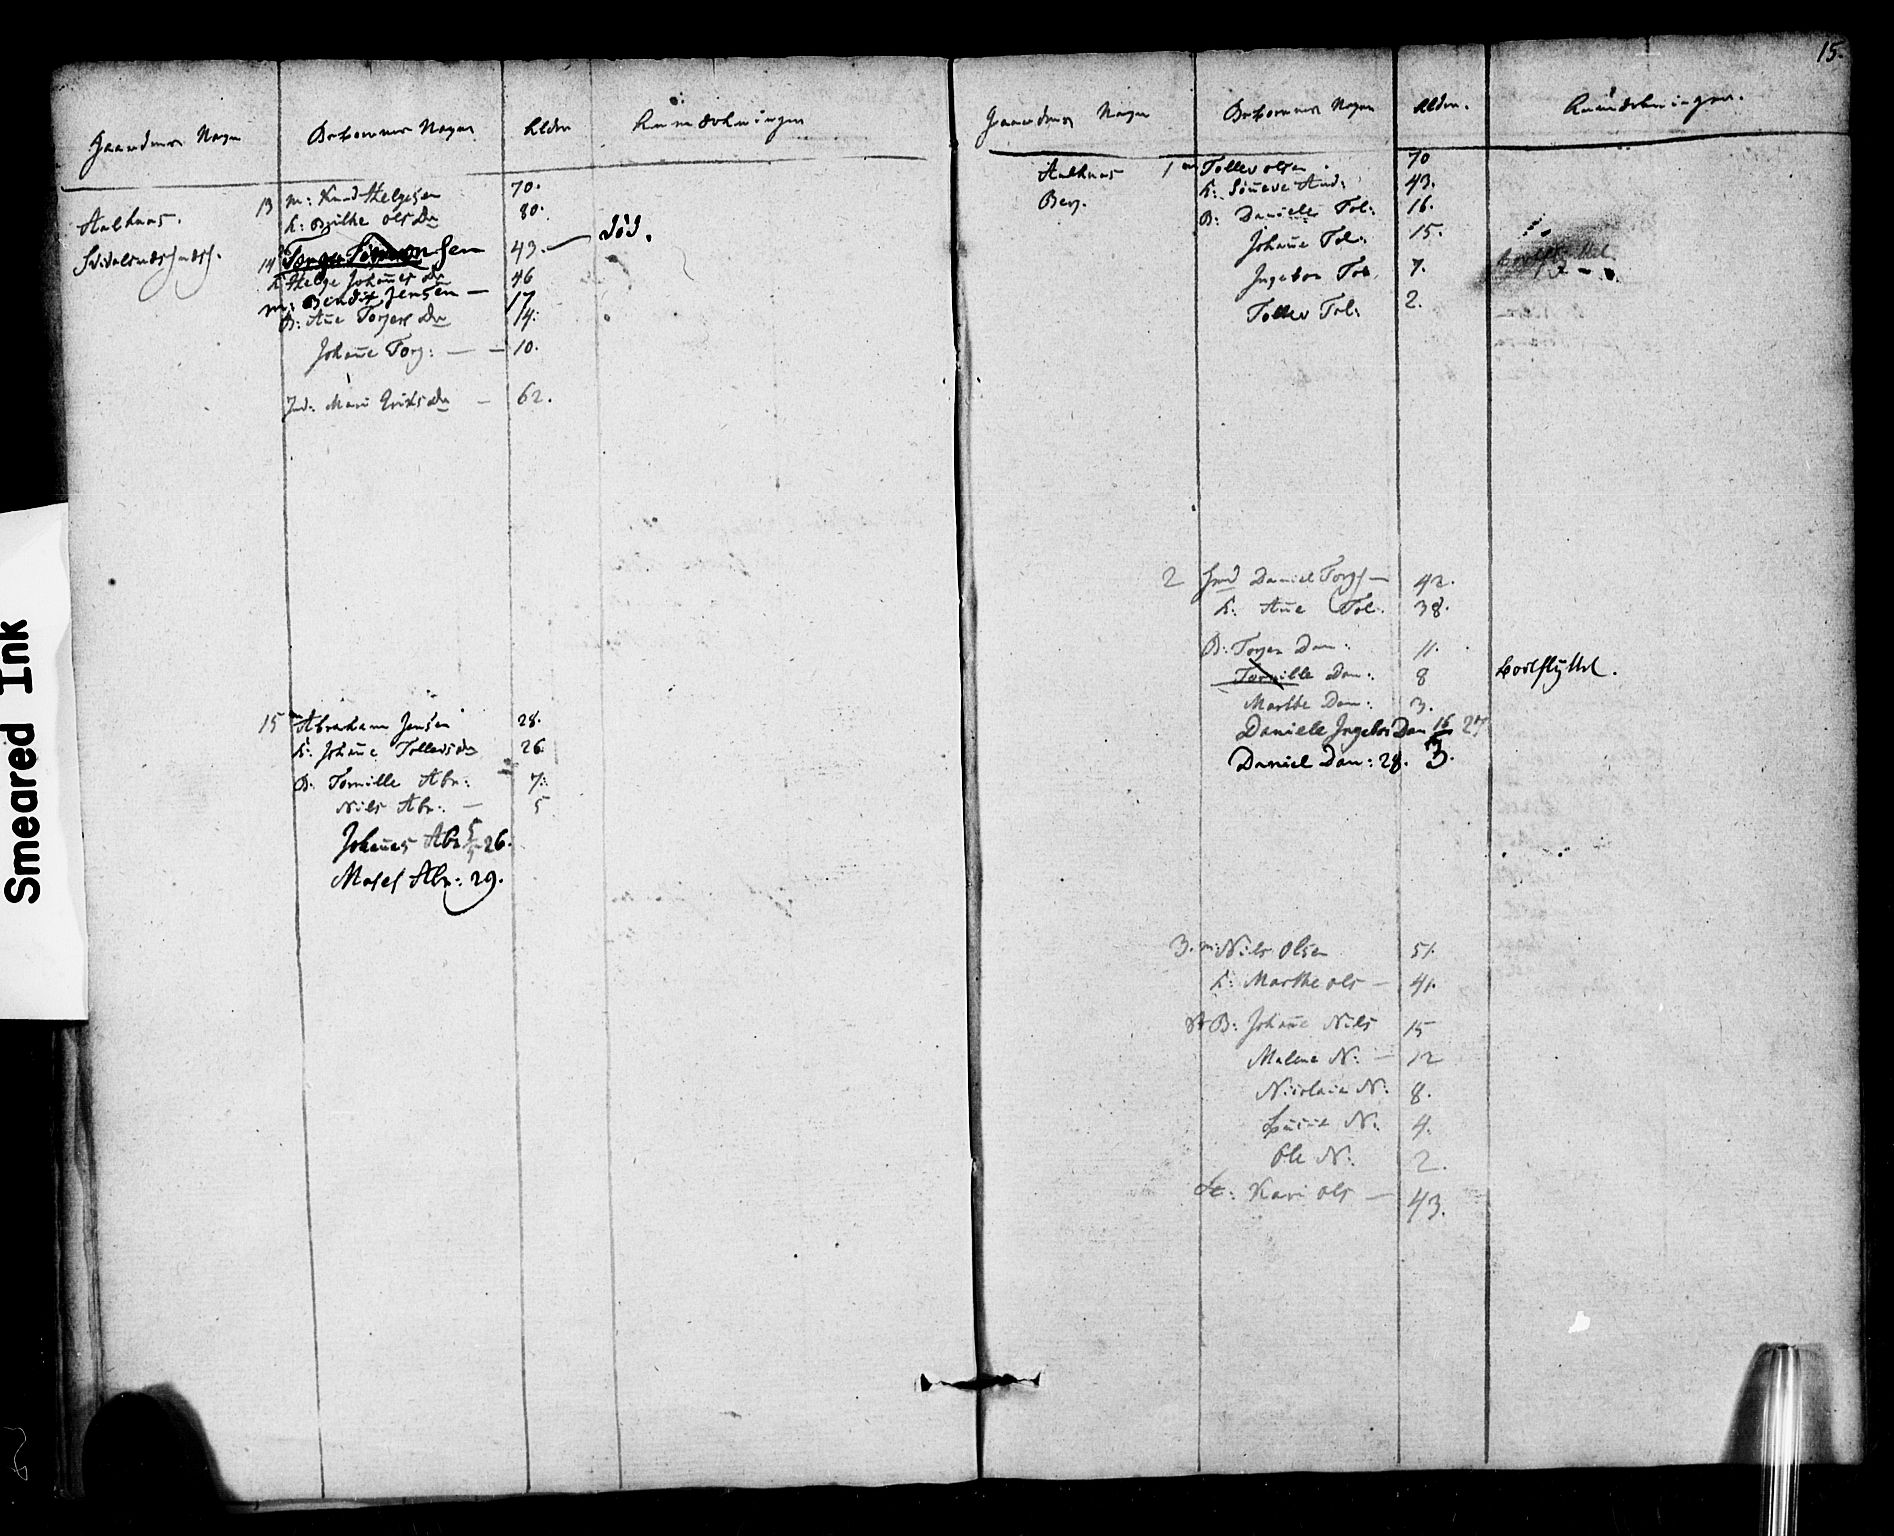 15.
Gaardenes Navn
Beboernes Navne
Alder
Anmærkninger
Aalhuus.
13 m: Knud Helgesen 70.
k: Birthe Ols Da 80.
14 Torger Tønnessen 43. — død.
k Helge Johannes Da 46
m: Bendix Jensen — 17
B: Ane Torgers Da 14.
Johanne Torg: — 10.
Ind: Mari Eriks Da — 62.
15 m Abraham Jensen 28.
k: Johanne Tollevs Da 26.
B: Tomille Abr: 7.
Nils Abr: — 5
Johanes Abr 5/5 26.
Moses Abr: 29.
Gaardenes Navn
Beboernes Navne
Alder.
Anmærkninger.
Aalhuus
Berg.
1 m Tollev Olsen 70
k: And: 43.
B: Danielle Tol: 16.
Johanne Tol: 15.
Ingebor Tol. 7.
Tollev Tol: 2.
2 Daniel Torgs — 42.
k: Ane Tol. 38.
B: Torger Dan: 11.
Tomille Dan: 8 bortflyttet.
Marthe Dan: 3.
Danielle Ingebor Dan 16/3 27
Daniel Dan: 28. 3.
3. m: Nils Olsen 51.
k: Marthe Ols — 41.
B: Johanne Nils 15
Malene N: — 12
Nicolaia N: 8.
N: 4.
Ole N: 2.
Kari Ols — 43.
Smeared Ink